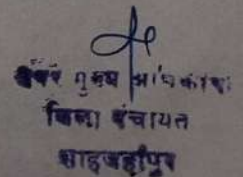 अपर मुख्य अधिकारी
जिला पंचायत
शाहजहाँपुर